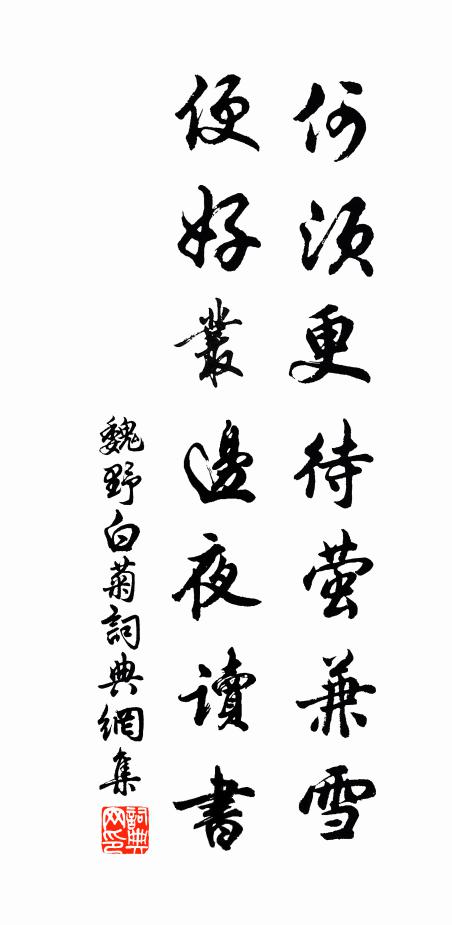 何須更待萤兼雪
便好叢邊夜讀書
魏野白菊詞典網集
詞典网印